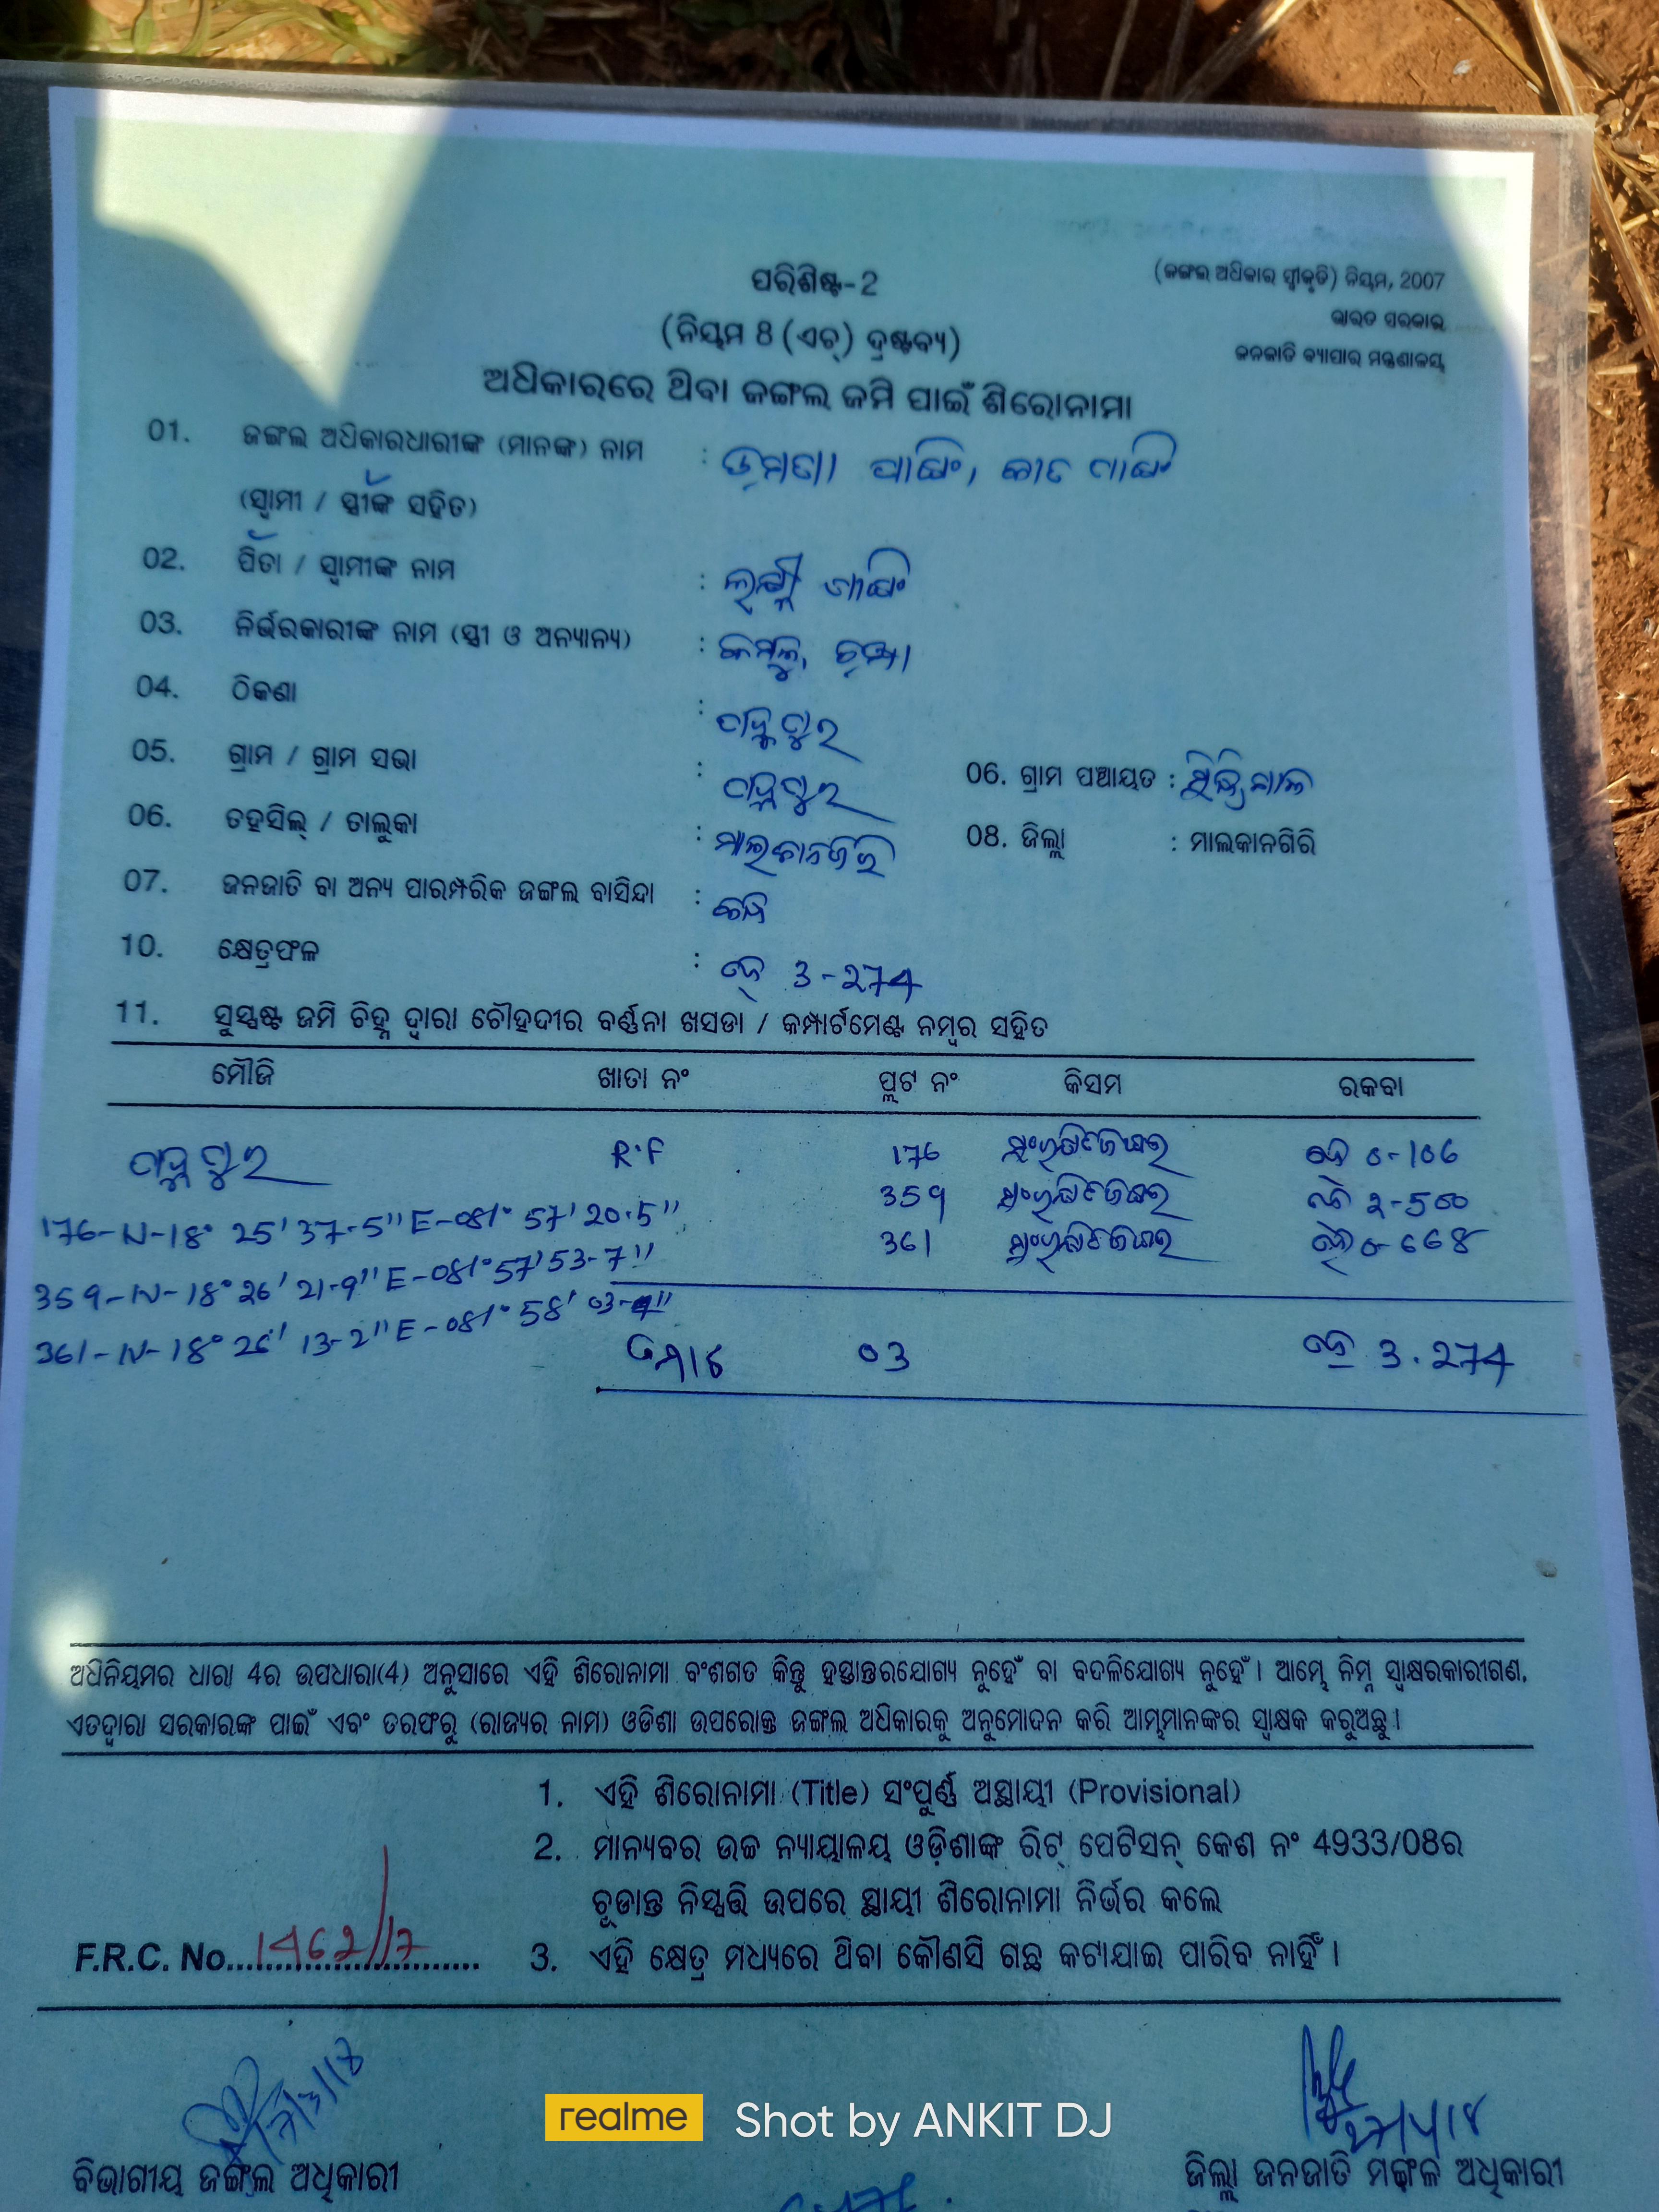 (ଜଙ୍ଗଲ ଅଧିକାର ସ୍ୱୀକୃତି) ନିୟମ, 2007
ଭାରତ ସରକାର
ଜନଜାତି ବ୍ୟାପାର ମନ୍ତ୍ରଣାଳୟ
ପରିଶିଷ୍ଟ-2
(ନିୟମ 8 (ଏଚ୍) ଦ୍ରଷ୍ଟବ୍ୟ)
ଅଧିକାରରେ ଥିବା ଜଙ୍ଗଲ ଜମି ପାଇଁ ଶିରୋନାମା
01. ଜଙ୍ଗଲ ଅଧିକାରଧାରୀଙ୍କ (ମାନଙ୍କ) ନାମ :
(ସ୍ୱାମୀ / ସ୍ତ୍ରୀଙ୍କ ସହିତ)
02. ପିତା / ସ୍ୱାମୀଙ୍କ ନାମ :
03. ନିର୍ଭରକାରୀଙ୍କ ନାମ (ସ୍ତ୍ରୀ ଓ ଅନ୍ୟାନ୍ୟ) :
04. ଠିକଣା :
05. ଗ୍ରାମ / ଗ୍ରାମ ସଭା : 06. ଗ୍ରାମ ପଞ୍ଚାୟତ :
06. ତହସିଲ୍ / ତାଲୁକା : ମାଲକାନଗିରି 08. ଜିଲ୍ଲା : ମାଲକାନଗିରି
07. ଜନଜାତି ବା ଅନ୍ୟ ପାରମ୍ପରିକ ଜଙ୍ଗଲ ବାସିନ୍ଦା :
10. କ୍ଷେତ୍ରଫଳ : ହେ 3-274
11. ସୁସ୍ପଷ୍ଟ ଜମି ଚିହ୍ନ ଦ୍ୱାରା ଚୌହଦୀର ବର୍ଣ୍ଣନା ଖସଡା / କମ୍ପାର୍ଟମେଣ୍ଟ ନମ୍ବର ସହିତ
ମୌଜି ଖାତା ନଂ ପ୍ଲଟ ନଂ କିସମ ରକବା
R.F 176 ହେ 0-106
359 ହେ 2-500
361 ହେ 0-668
176-N-18° 25' 37.5" E-081° 57' 20.5"
359-N-18° 26' 21-9" E-081° 57' 53-7"
361-N-18° 26' 13-2" E-081° 58'
ମୋଟ 03 ହେ 3.274
ଅଧିନିୟମର ଧାରା 4ର ଉପଧାରା(4) ଅନୁସାରେ ଏହି ଶିରୋନାମା ବଂଶଗତ କିନ୍ତୁ ହସ୍ତାନ୍ତରଯୋଗ୍ୟ ନୁହେଁ ବା ବଦଳିଯୋଗ୍ୟ ନୁହେଁ। ଆମ୍ଭେ ନିମ୍ନ ସ୍ୱାକ୍ଷରକାରୀଗଣ,
ଏତଦ୍ୱାରା ସରକାରଙ୍କ ପାଇଁ ଏବଂ ତରଫରୁ (ରାଜ୍ୟର ନାମ) ଓଡିଶା ଉପରୋକ୍ତ ଜଙ୍ଗଲ ଅଧିକାରକୁ ଅନୁମୋଦନ କରି ଆମ୍ଭମାନଙ୍କର ସ୍ୱାକ୍ଷକ କରୁଅଛୁ।
1. ଏହି ଶିରୋନାମା (Title) ସଂପୁର୍ଣ୍ଣ ଅସ୍ଥାୟୀ (Provisional)
2. ମାନ୍ୟବର ଉଚ୍ଚ ନ୍ୟାୟାଳୟ ଓଡ଼ିଶାଙ୍କ ରିଟ୍ ପେଟିସନ୍ କେଶ ନଂ 4933/08ର
ଚୂଡାନ୍ତ ନିସ୍ପତ୍ତି ଉପରେ ସ୍ଥାୟୀ ଶିରୋନାମା ନିର୍ଭର କଲେ
3. ଏହି କ୍ଷେତ୍ର ମଧ୍ୟରେ ଥିବା କୌଣସି ଗଛ କଟାଯାଇ ପାରିବ ନାହିଁ।
F.R.C. No. 1462//7
ବିଭାଗୀୟ ଜଙ୍ଗଲ ଅଧିକାରୀ
ଜିଲ୍ଲା ଜନଜାତି ମଙ୍ଗଳ ଅଧିକାରୀ
realme Shot by ANKIT DJ